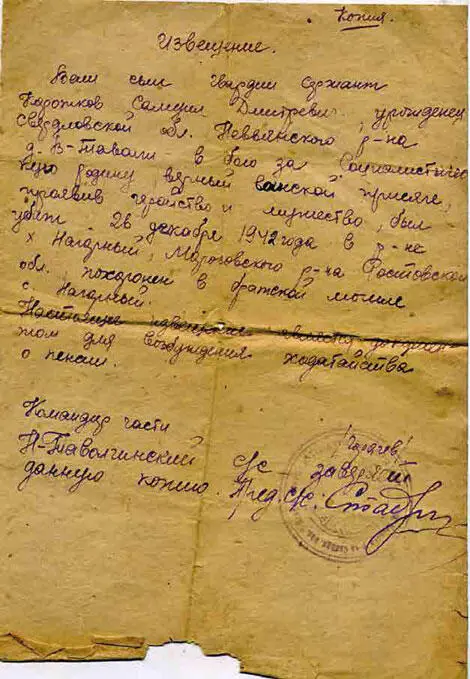 Копия.
Извещение.
Ваш сын гвардии сержант
Коротков Самуил Дмитревич уроженец
Свердловской обл. Невьянского р-на
д. В-Таволги в бою за Социалистичес
кую родину, верный воинской присяге,
проявив геройство и мужество, был
убит 26 декабря 1942 года в р-не
х Нагорный, Морозовского р-на Ростовской
обл. похоронен в братской могиле
с. Нагорный.
Настоящее извещение является докумен
том для возбуждения ходатайства
о пенсии.
Командир части
Н-Таволгинский с/с заверяет
данную копию. Пред. с/с.